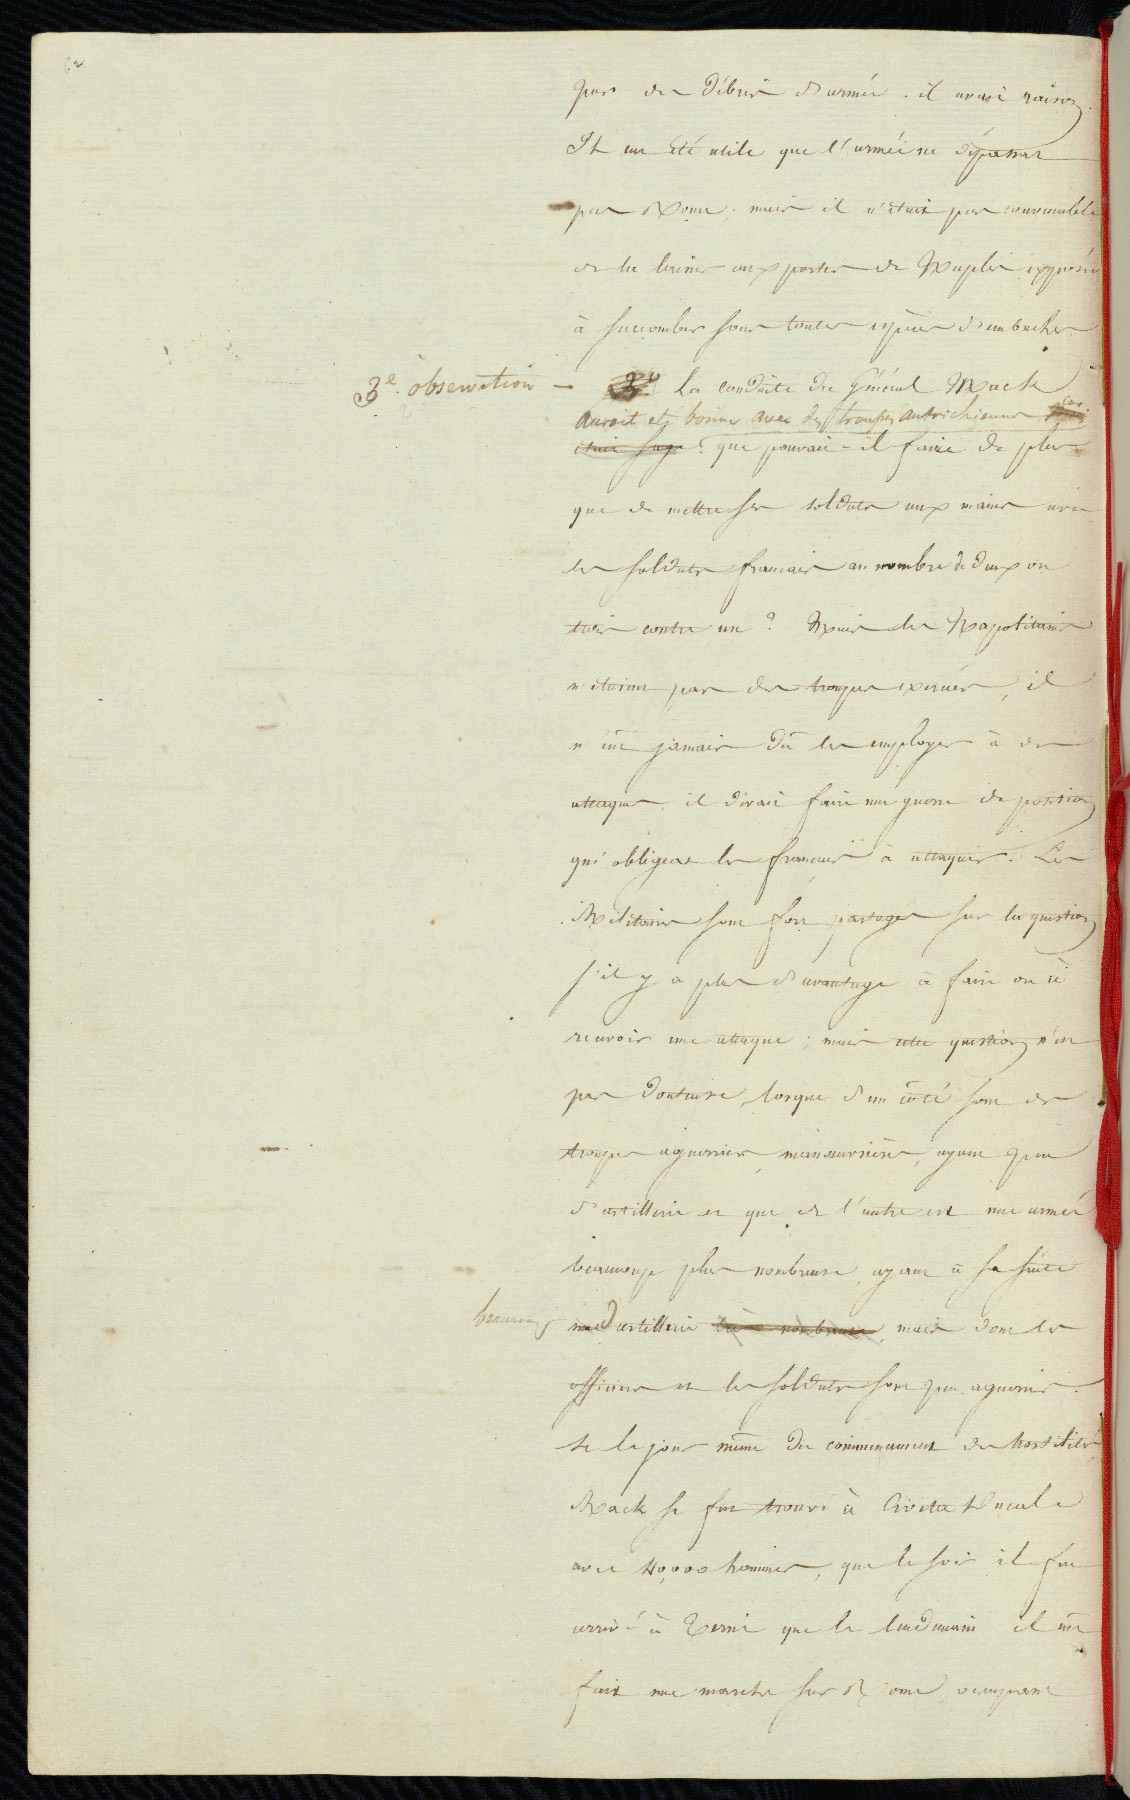 62
par des débris d'armée. il avait raison.
It eut été utile que l'armée ne dépassat
pas Rome; mais il n'était pas convenable
de la laisser aux portes de Naples exposée
à succomber sous toutes espèces d'embuches
3e. observation — 3o La conduite du Général Mack
auroit été bonne avec des troupes autrichiennes car
était sage: que pouvait-il faire de plus
que de mettre ses soldats aux mains avec
les soldats francais au nombre de deux ou
trois contre un? Mais les Napolitains
n'étaient pas des troupes exercées, il
n'eût jamais dû les employer à des
attaques, il devait faire une guerre de position
qui obligeat les francais à attaquer. Les
Militaires sont fort partagés sur la question
s'il y a plus d'avantage à faire ou à
recevoir une attaque; mais cette question n'est
pas douteuse, lorsque d'un côté sont des
troupes aguerries, manœuvrières, ayant peu
d'artillerie et que de l'autre est une armée
beaucoup plus nombreuse, ayant à sa suite
beaucoup une d'artillerie très nombreuse, mais dont les
officiers et les soldats sont peu aguerris.
Si le jour même du commencement des hostilités
Mack se fut trouvé à Civita Ducale
avec 40,000 hommes, que le soir il fut
arrivé à Terni que le lendemain il eût
fait une marche sur Rome, occupant